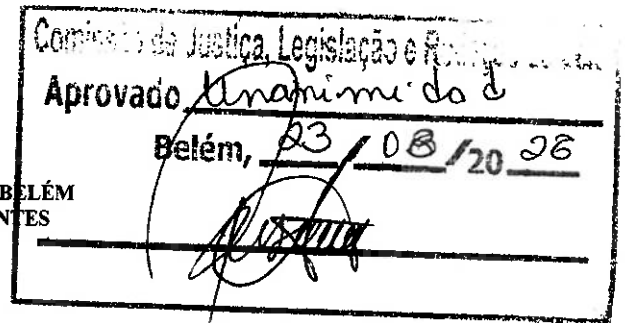 Comissão da Justiça, Legislação e
Aprovado Unanimidad
Belém, 23 / 08 /20 26
BELÉM
NTES